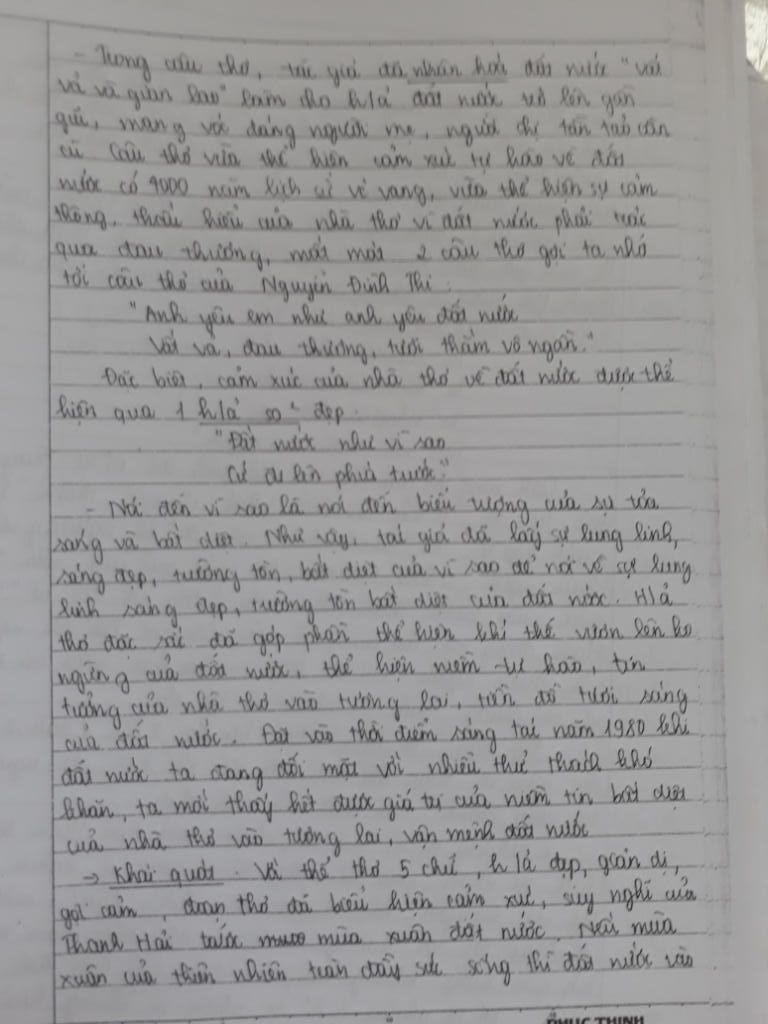 - Trong câu thơ, tác giả đã nhân hoá đất nước "vất
vả và gian lao" làm cho h/ả đất nước trở lên gần
gũi, mang vóc dáng người mẹ, người chị tần tảo cần
cù Câu thơ vừa thể hiện cảm xúc tự hào về đất
nước có 4000 năm lịch sử vẻ vang, vừa thể hiện sự cảm
thông, thấu hiểu của nhà thơ vì đất nước phải trải
qua đau thương, mất mát 2 câu thơ gợi ta nhớ
tới câu thơ của Nguyễn Đình Thi :
"Anh yêu em như anh yêu đất nước
Vất vả, đau thương, tươi thắm vô ngần."
Đặc biệt, cảm xúc của nhà thơ về đất nước được thể
hiện qua 1 h/ả so² đẹp.
"Đất nước như vì sao
Cứ đi lên phía trước."
- Nói đến vì sao là nói đến biểu tượng của sự tỏa
sáng và bất diệt. Như vậy, tác giả đã lấy sự lung linh,
sáng đẹp, trường tồn, bất diệt của vì sao để nói về sự lung
linh sáng đẹp, trường tồn bất diệt của đất nước. H/ả
thơ đặc sắc đã góp phần thể hiện khí thế vươn lên ko
ngừng của đất nước, thể hiện niềm tự hào, tin
tưởng của nhà thơ vào tương lai, tiền đồ tươi sáng
của đất nước. Đặt vào thời điểm sáng tác năm 1980 khi
đất nước ta đang đối mặt với nhiều thử thách khó
khăn, ta mới thấy hết được giá trị của niềm tin bất diệt
của nhà thơ vào tương lai, vận mệnh đất nước
→ Khái quát. Với thể thơ 5 chữ, h/ả đẹp, giản dị,
gợi cảm, đoạn thơ đã biểu hiện cảm xúc, suy nghĩ của
Thanh Hải trước mùa xuân đất nước. Nếu mùa
xuân của thiên nhiên tràn đầy sức sống thì đất nước vào
PHÚC THỊNH